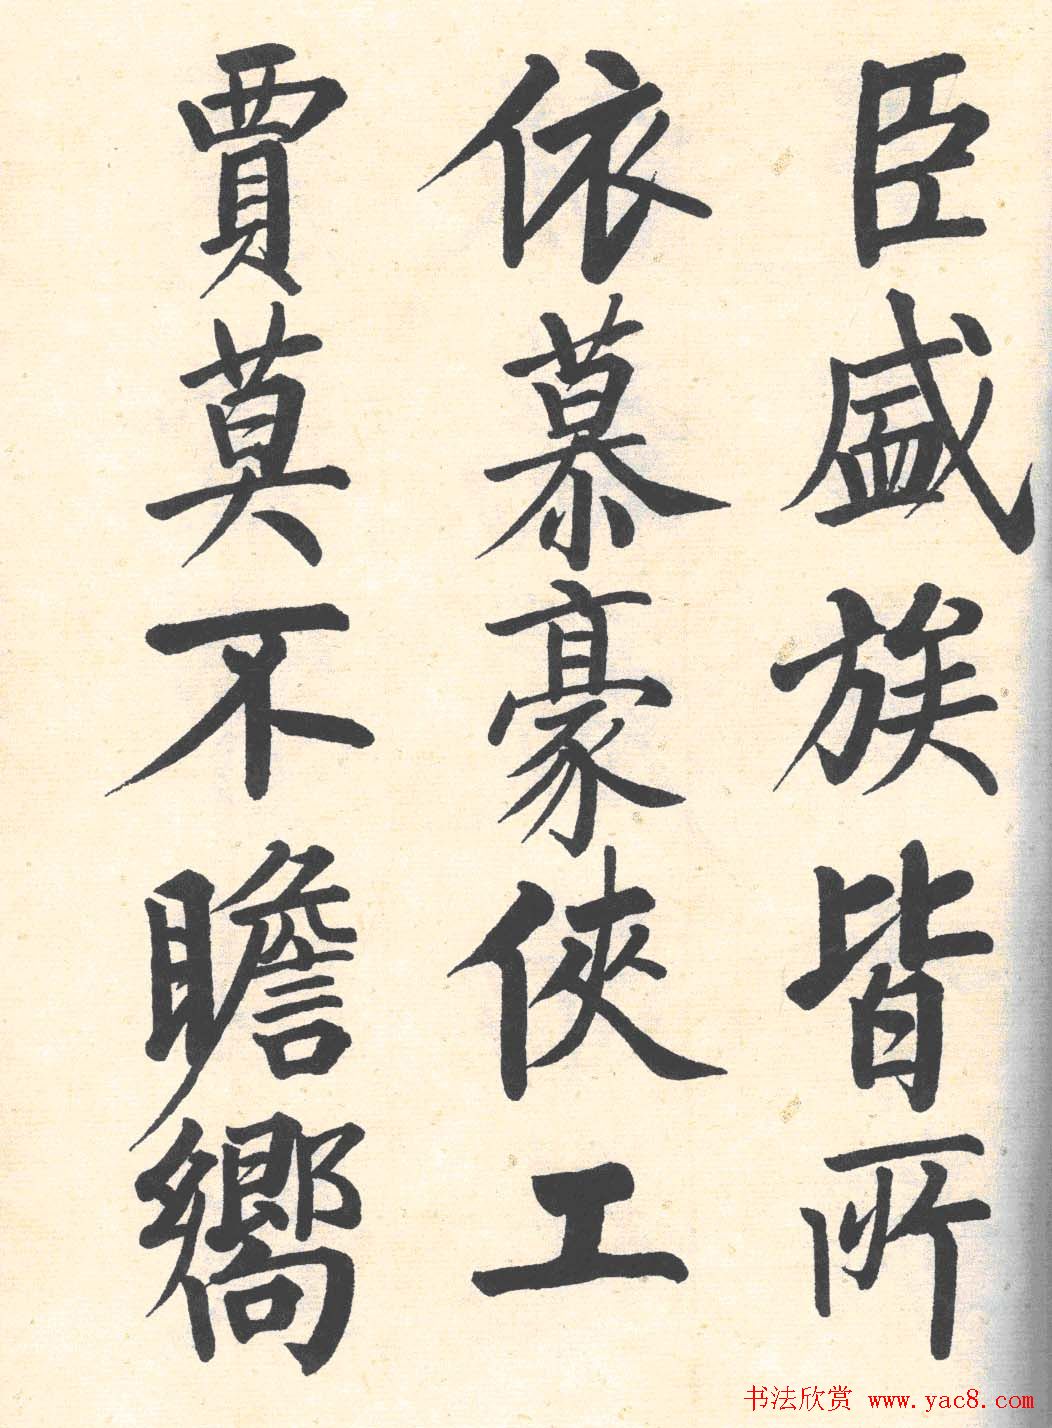 臣盛族皆所
依慕豪俠工
賈莫不瞻嚮
书法欣赏 www.yac8.com